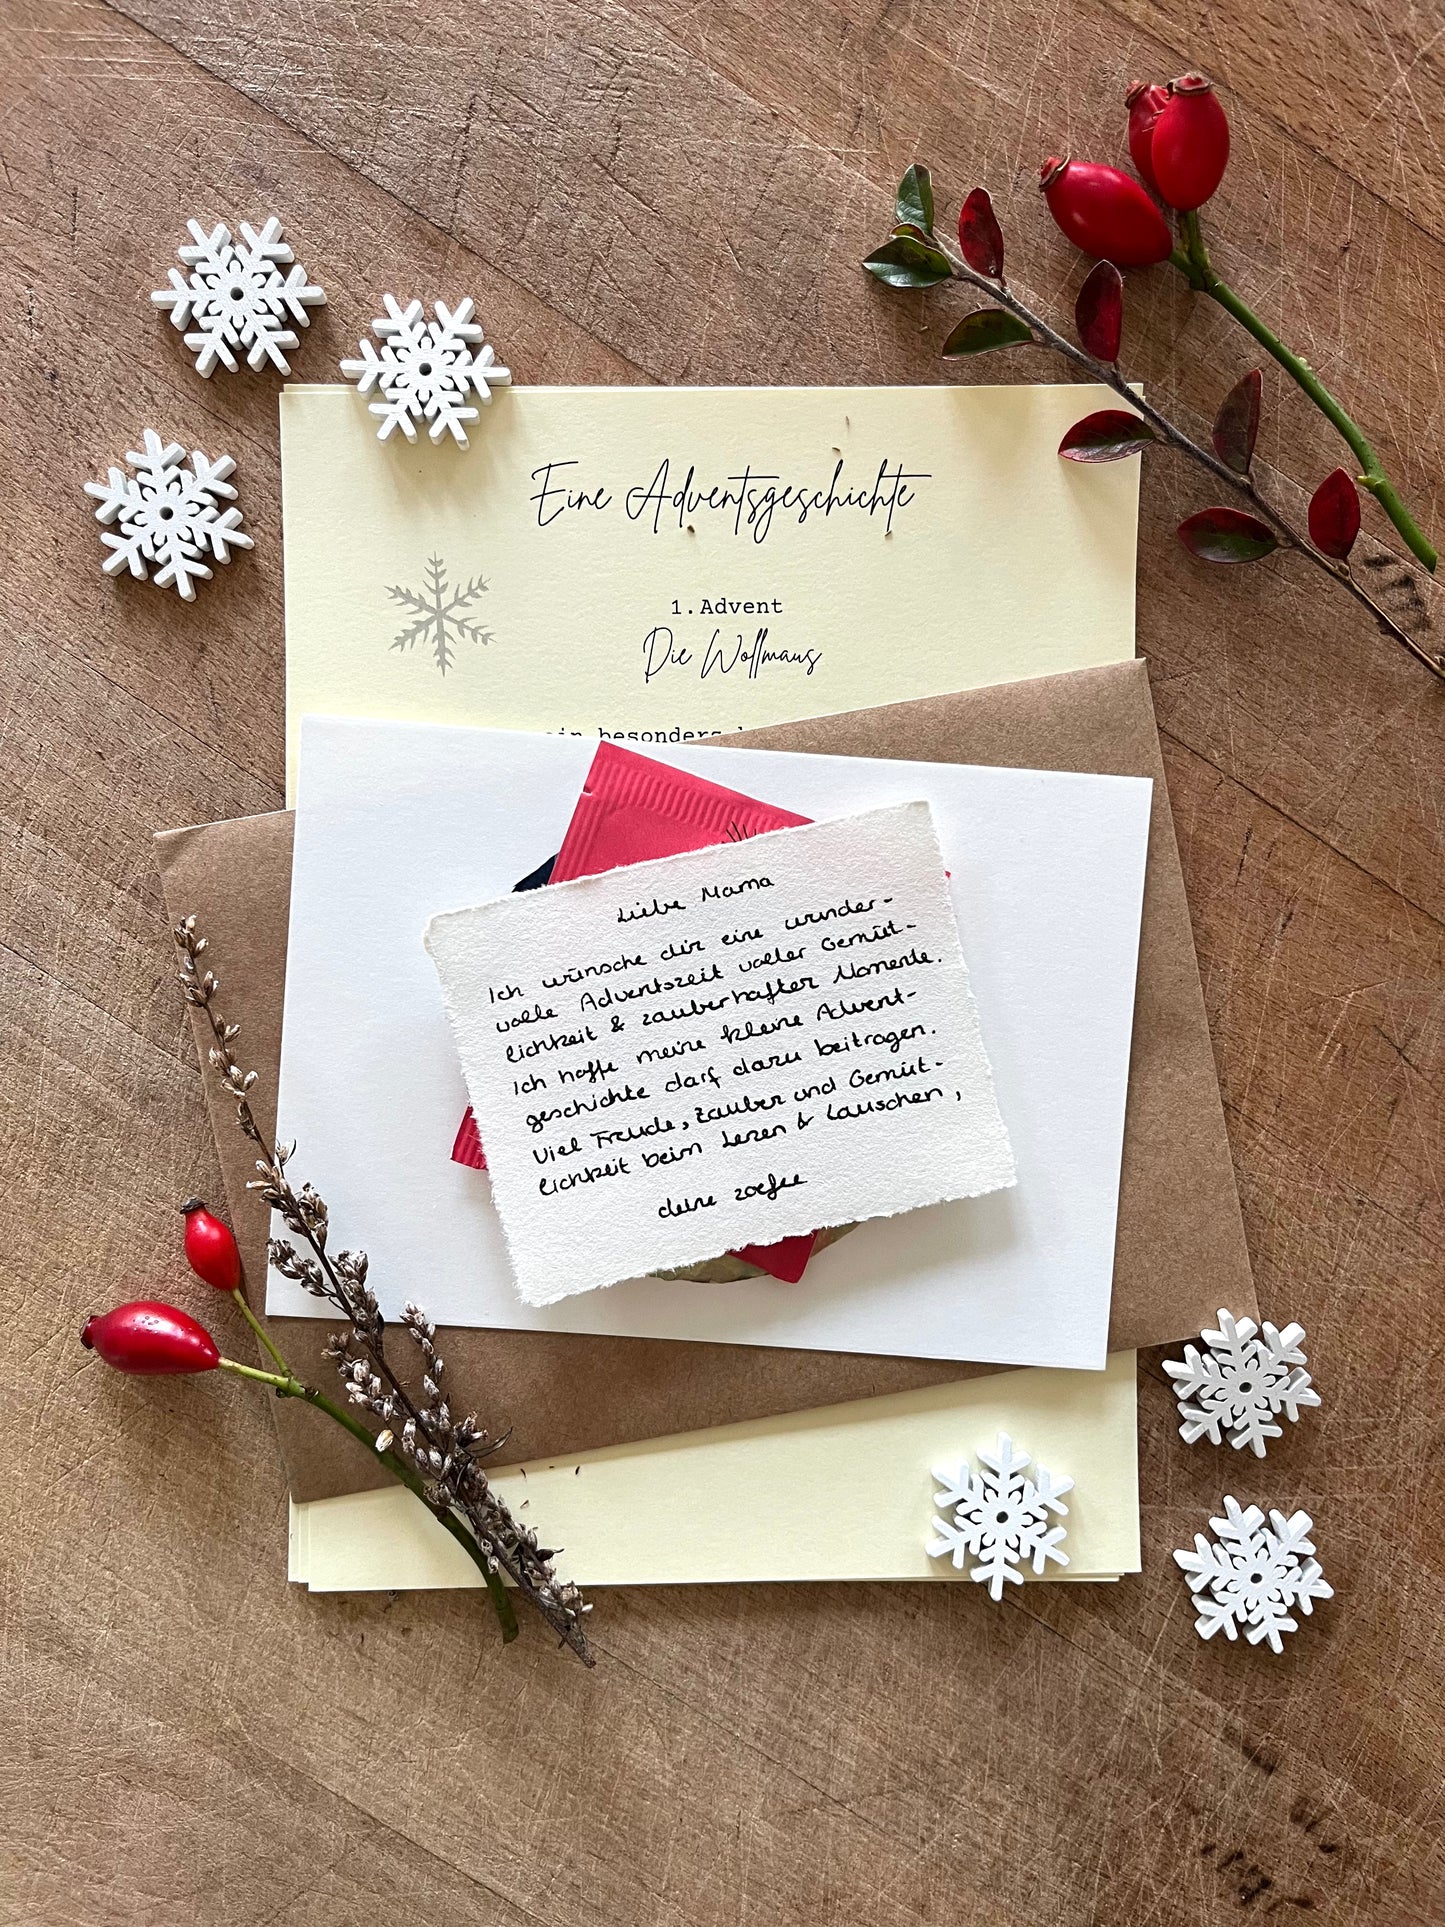 Eine Adventsgeschichte
1. Advent
Die Wollmaus
ein besonders
Liebe Mama
Ich wünsche dir eine wunder-
volle Adventszeit voller Gemüt-
lichkeit & zauberhafter Momente.
Ich hoffe meine kleine Advent-
geschichte darf dazu beitragen.
Viel Freude, Zauber und Gemüt-
lichkeit beim Lesen & Lauschen,
deine zoefee